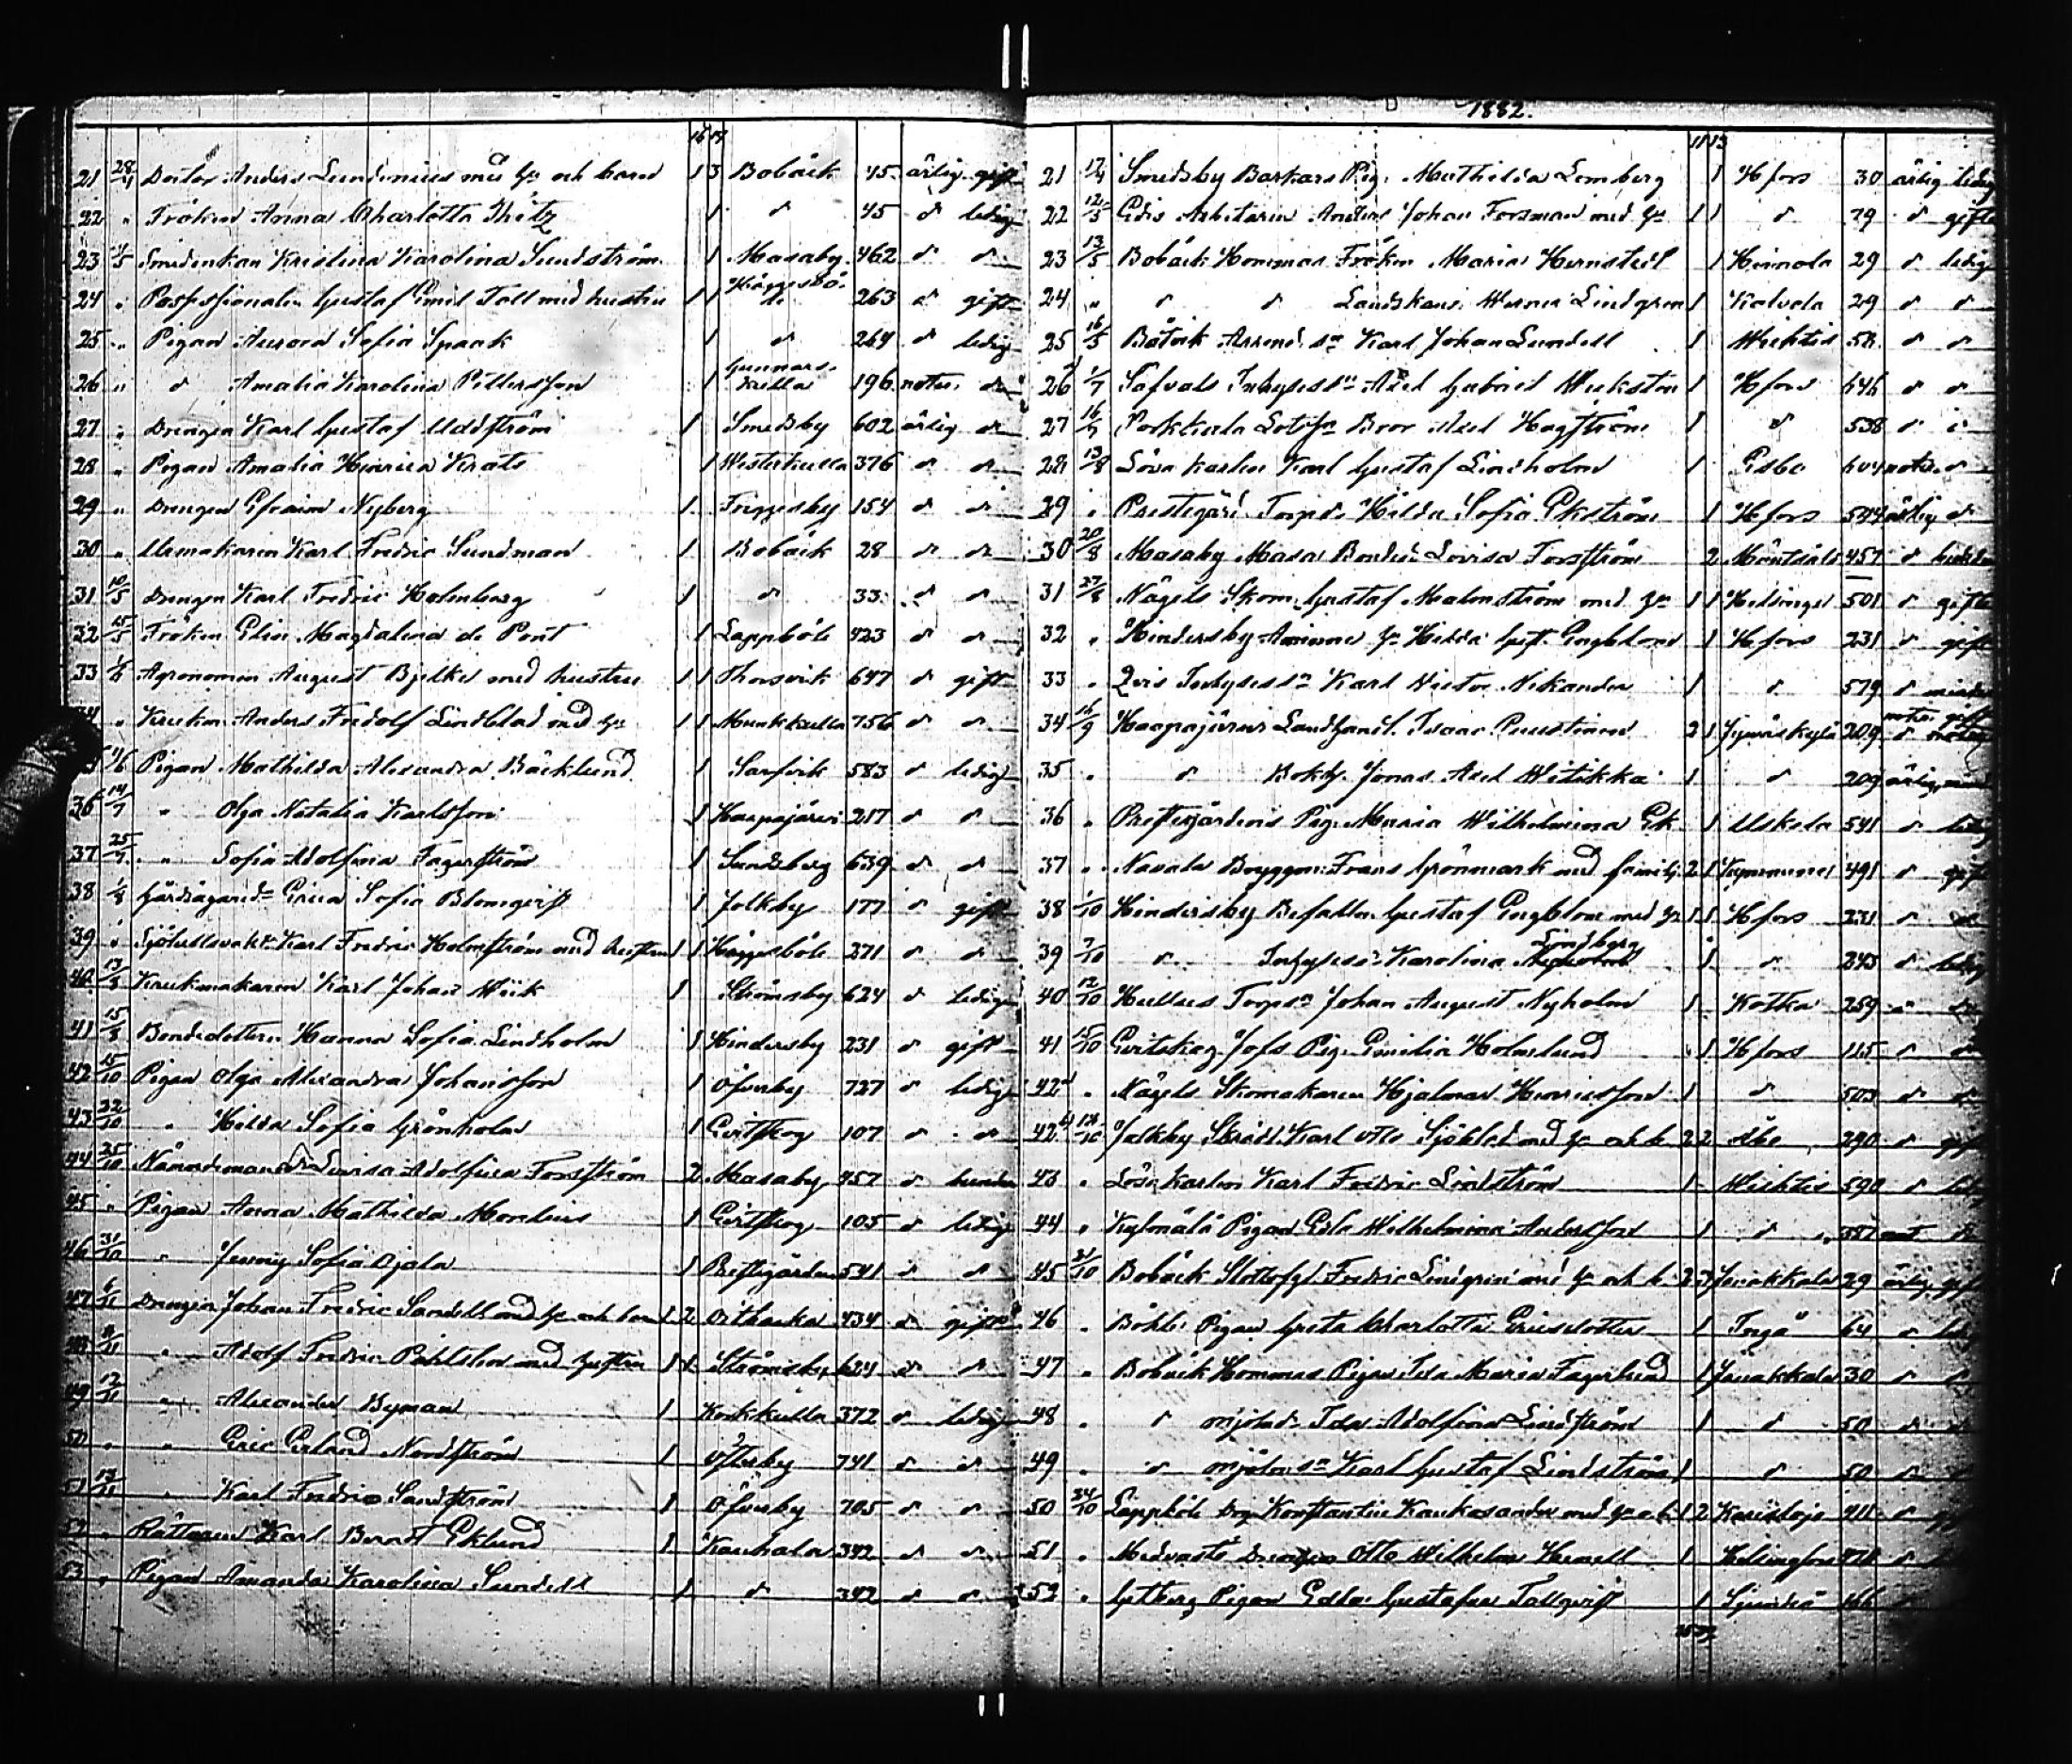 1882.
16 17
21 28/4 Doctor Anders Lundenius med h:u och barn 1 3 Bobäck 45 ärlig gift
22 " Fröken Anna Charlotta Thitz 1 d:o 45 d:o ledig
23 1/5 Smedenkan Kristina Karolina Sundström 1 Masaby 462 d:o d:o
24 " Possessionaten Gustaf Emil Toll med hustru 1 1 263 d:o gift
25 " Pigan Aurora Sofia Spaak 1 d:o 264 d:o ledig
26 " d:o Amalia Karolina Pettersson 1 Gunnarskulla 196 d:o
27 " Drengen Karl Gustaf Uddström 1 Smedsby 602 ärlig d:o
28 " Pigan Amalia Henrica Krats 1 Westerkulla 376 d:o d:o
29 " Drengen Efraim Nyberg 1 Friggesby 154 d:o d:o
30 " Urmakaren Karl Fredric Sundman 1 Bobäck 28 d:o d:o
31 10/5 Drengen Karl Fredric Holmberg 1 d:o 33 d:o d:o
32 15/5 Fröken Elin Magdalena de Pont 1 Lappböle 423 d:o d:o
33 1/6 Agronomen August Bjelke med hustru 1 1 Thorsvik 647 d:o gift
34 " Anders Fredolf Lindblad med h:u 1 1 Munkkulla 756 d:o d:o
35 11/6 Pigan Mathilda Alexandra Bäcklund 1 Sarfvik 583 d:o ledig
36 14/7 " Olga Natalia Karlsson 1 Haapajärvi 217 d:o d:o
37 25/7 " Sofia Adolfina Fagerström 1 Sundsberg 639 d:o d:o
38 1/8 Gårdsägared: Erica Sofia Blomqvist 1 Jolkby 177 d:o gift
39 " Karl Fredric Holmström med hustru 1 1 Häggesböle 271 d:o d:o
40 13/8 Krukmakaren Karl Johan Wiik 1 Strömsby 624 d:o ledig
41 15/8 Bondedottern Hanna Sofia Lindholm 1 Hindersby 231 d:o gift
42 15/10 Pigan Olga Alexandra Johansson 1 Öfverby 727 d:o ledig
43 22/10 " Hilda Sofia Grönholm 1 Evitskog 107 d:o d:o
44 25/10 Nämndemans Lovisa Adolfina Forsström 2 Masaby 457 d:o
45 " Pigan Anna Mathilda Monlius 1 Evitskog 105 d:o ledig
46 31/10 " Jenny Sofia Ojala 1 Prestgården 541 d:o d:o
47 6/11 Drengen Johan Fredric Sandell med h:u och barn 1 2 434 d:o gift
48 11/11 " Adolf Fredric med hustru 1 1 Strömsby 624 d:o d:o
49 12/11 " Alexander Byman 1 Korkkulla 372 d:o ledig
50 " " Eric Erland Nordström 1 Österby 741 d:o d:o
51 13/11 " Karl Fredric Sandström 1 Öfverby 705 d:o d:o
52 " Rättaren Karl Berndt Eklund 1 Kauhala 342 d:o d:o
53 " Pigan Amanda Karolina Sundell 1 d:o 342 d:o d:o
11 13
21 17/4 Smedsby Barkars Pig. Mathilda Lemberg 1 H:fors 30 ärlig ledig
22 12/5 Edis Arbetaren Anders Johan Forsman med h:u 1 1 d:o 79 d:o gifte
23 13/5 Bobäck Hommas Fröken Maria Hernstedt 1 Heinola 29 d:o ledig
24 " d:o d:o Werner Lindgren 1 Kalvola 29 d:o d:o
25 16/5 Båtvik Arrend.s:n Karl Johan Lundell 1 Wichtis 58 d:o d:o
26 1/7 Safvals Inhyses s:n Axel Gabriel Wickström 1 H:fors 646 d:o d:o
27 16/7 Porkkala Lots s:n Bror Axel Hagström 1 d:o 538 d:o d:o
28 13/8 Löse karlen Karl Gustaf Lindholm 1 Esbo 604 d:o
29 " Prestgård Torpd. Hilda Sofia Ekström 1 H:fors 544 ärlig d:o
30 20/8 Masaby Masas Bonded. Lovisa Forsström 2 Mäntsälä 457 d:o
31 27/8 Nägels Skom. Gustaf Malmström med h:u 1 1 Helsinge 501 d:o gifte
32 " Hindersby h:u Hilda Gust. Engblom 1 H:fors 231 d:o gift
33 " Qvis Inhyses s:n Karl Victor Nikander 1 d:o 579 d:o
34 16/9 Haapajärvi Landthandl. Isaac Puustinen 2 1 Jyväskylä 209
35 " d:o Bokh. Jonas Axel Witikka 1 d:o 209 ärlig
36 " Prestgårdens Pig. Maria Wilhelmina Ek 1 Uskela 541 d:o ledig
37 " Navala Bryggm. Frans Grönmark med familj 2 1 Kymmene 491 d:o gift
38 1/10 Hindersby Befallm. Gustaf Engblom med h:u 1 1 H:fors 231 d:o d:o
39 7/10 d:o Inhyses. Karolina Lindberg 1 d:o 243 d:o ledig
40 12/10 Hullus Torps:n Johan August Nyholm 1 Kotka 259 d:o
41 15/10 Evitskog Jofs Pig. Emilia Holmlund 1 H:fors 115 d:o
42 a " Nägels Skomakaren Hjalmar Henricsson 1 d:o 503 d:o
42 b 18/10 Jolkby Skrädd. Karl Otto Sjöblad med h:u och b. 2 2 Åbo 290 d:o gift
43 " Löse Karlen Karl Fredric Lindström 1 Wichtis 590 d:o ledig
44 " Kylmälä Pigan Edla Wilhelmina Andersson 1 d:o 387
45 21/10 Bobäck Fredric Lindgren med h:u och b. 2 3 Janakkala 29 ärlig gift
46 " Böhle Pigan Greta Charlotta Ericsdotter 1 Ingå 64 d:o ledig
47 " Bobäck Hommas Pigan Ida Maria Fagerlund 1 Janakkala 30 d:o
48 " d:o Mjölnd. Ida Adolfina Lindström 1 d:o 50 d:o
49 " d:o Mjöln.s:n Karl Gustaf Lindström 1 d:o 50 d:o
50 24/10 Lappböle Drg. Konstantin Kaukasander med h:u o. b. 1 2 Karislojo 411 d:o
51 " Medvasta Drengen Otto Wilhelm Hemell 1 Helsingfors d:o
52 " Getberg Pigan Edla Gustafva Tallqvist 1 Sjundeå 166